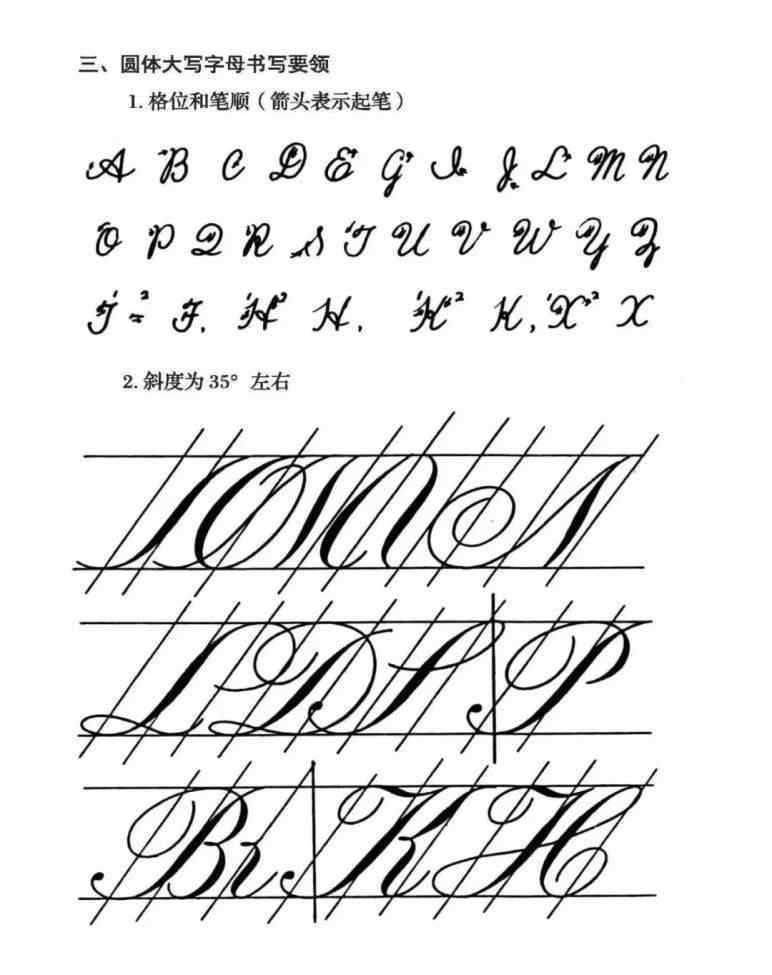 三、圆体大写字母书写要领
1. 格位和笔顺（箭头表示起笔）
A B C D E G I J L M N
O P Q R S T U V W Y Z
1 2 F. 1 2 H. 1 2 K, 1 2 X
2. 斜度为 35° 左右
L D S P
B r K H